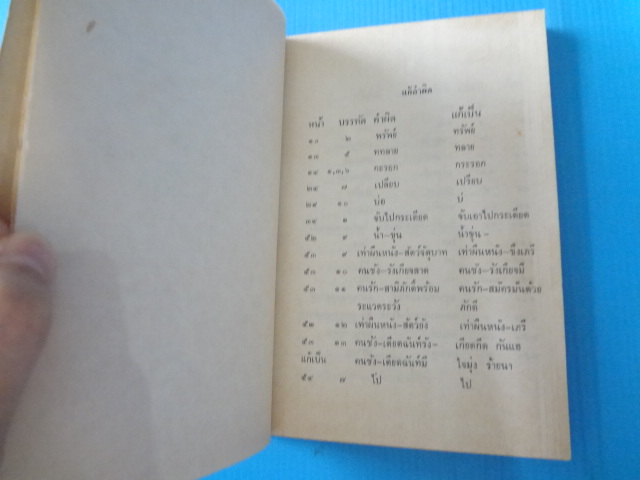 แก้คำผิด
หน้า บรรทัด คำผิด แก้เป็น
๑๐ ๒ พรัพย์ ทรัพย์
๑๓ ๕ ททลาย ทลาย
๑๔ ๑,๓,๖ กะรอก กระรอก
๒๕ ๗ เปลียบ เปรียบ
๒๙ ๑๐ บ่อ บ่
๓๔ ๑ จับไปกระเดียด จับเอาไปกระเดียด
๕๒ ๙ น้ำ-ขุ่น น้ำขุ่น-
๕๓ ๙ เท่าผืนหนัง-สัตว์จัตุบาท เท่าผืนหนัง-ขึงเภรี
๕๓ ๑๐ คนชัง-รังเกียจฉลาด คนชัง-รังเกียจมี
๕๓ ๑๑ คนรัก-สามิภักดิ์พร้อม คนรัก-สมัครมั่นด้วย
ระแวดระวัง ภักดี
๕๑ ๑๒ เท่าผืนหนัง-สัตว์ยัง เท่าผืนหนัง-เภรี
๕๓ ๑๓ คนชัง-เดียดฉันท์รัง- เกียดกีด กันแฮ
แก้เป็น คนชัง-เดียดฉันท์มี ใจมุ่ง ร้ายนา
๕๔ ๗ ไป ไป